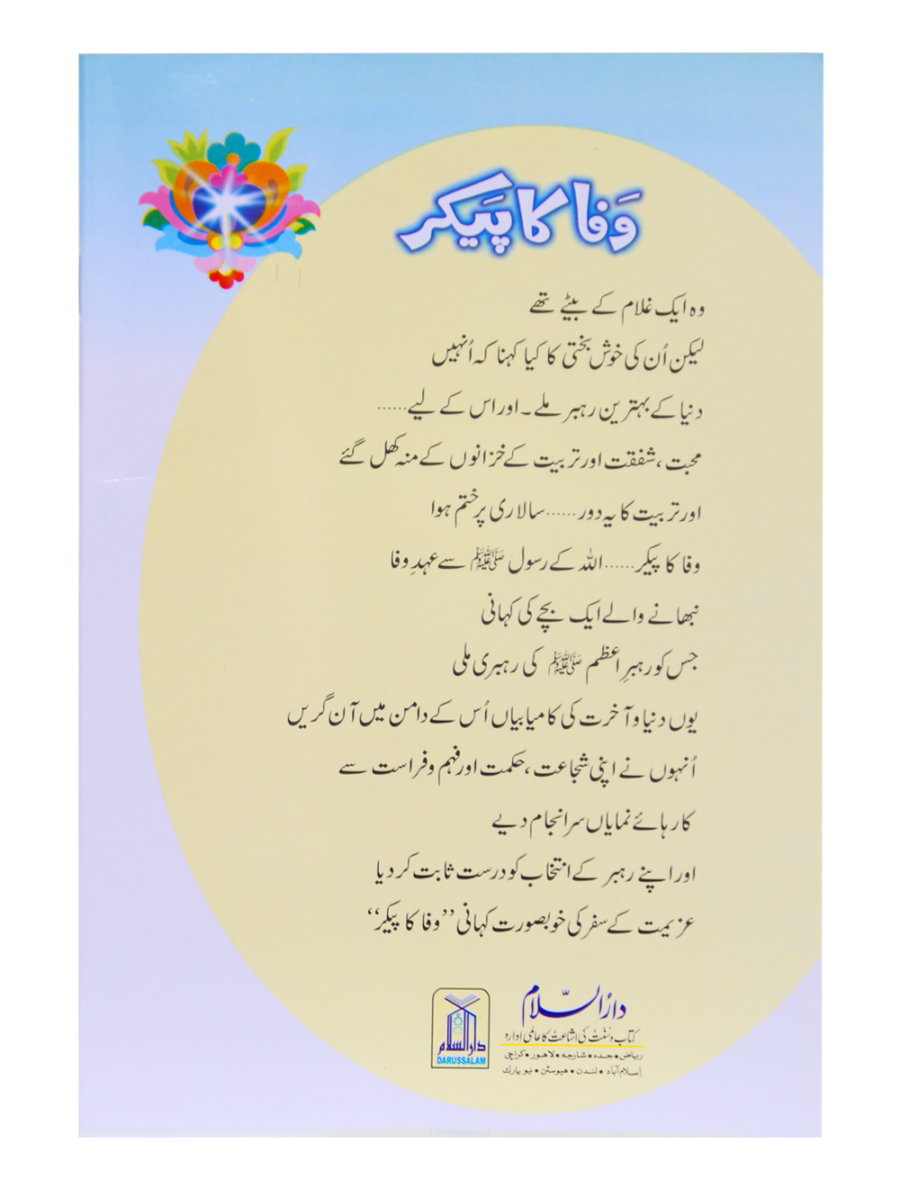 وَفا کا پَیکر
وہ ایک غلام کے بیٹے تھے
لیکن اُن کی خوش بختی کا کیا کہنا کہ اُنہیں
دنیا کے بہترین رہبر ملے۔ اور اس کے لیے......
محبت، شفقت اور تربیت کے خزانوں کے منہ کھل گئے
اور تربیت کا یہ دور......سالاری پر ختم ہوا
وفا کا پیکر......اللہ کے رسول ﷺ سے عہدِ وفا
نبھانے والے ایک بچے کی کہانی
جس کو رہبرِ اعظم ﷺ کی رہبری ملی
یوں دنیا و آخرت کی کامیابیاں اُس کے دامن میں آن گریں
اُنہوں نے اپنی شجاعت، حکمت اور فہم و فراست سے
کارہائے نمایاں سرانجام دیے
اور اپنے رہبر کے انتخاب کو درست ثابت کر دیا
عزیمت کے سفر کی خوبصورت کہانی ”وفا کا پیکر“
دارالسلام
کتاب و سنت کی اشاعت کا عالمی ادارہ
ریاض • جدہ • شارجہ • لاہور • کراچی
اسلام آباد • لندن • ہیوسٹن • نیویارک
دارالسلام
DARUSSALAM